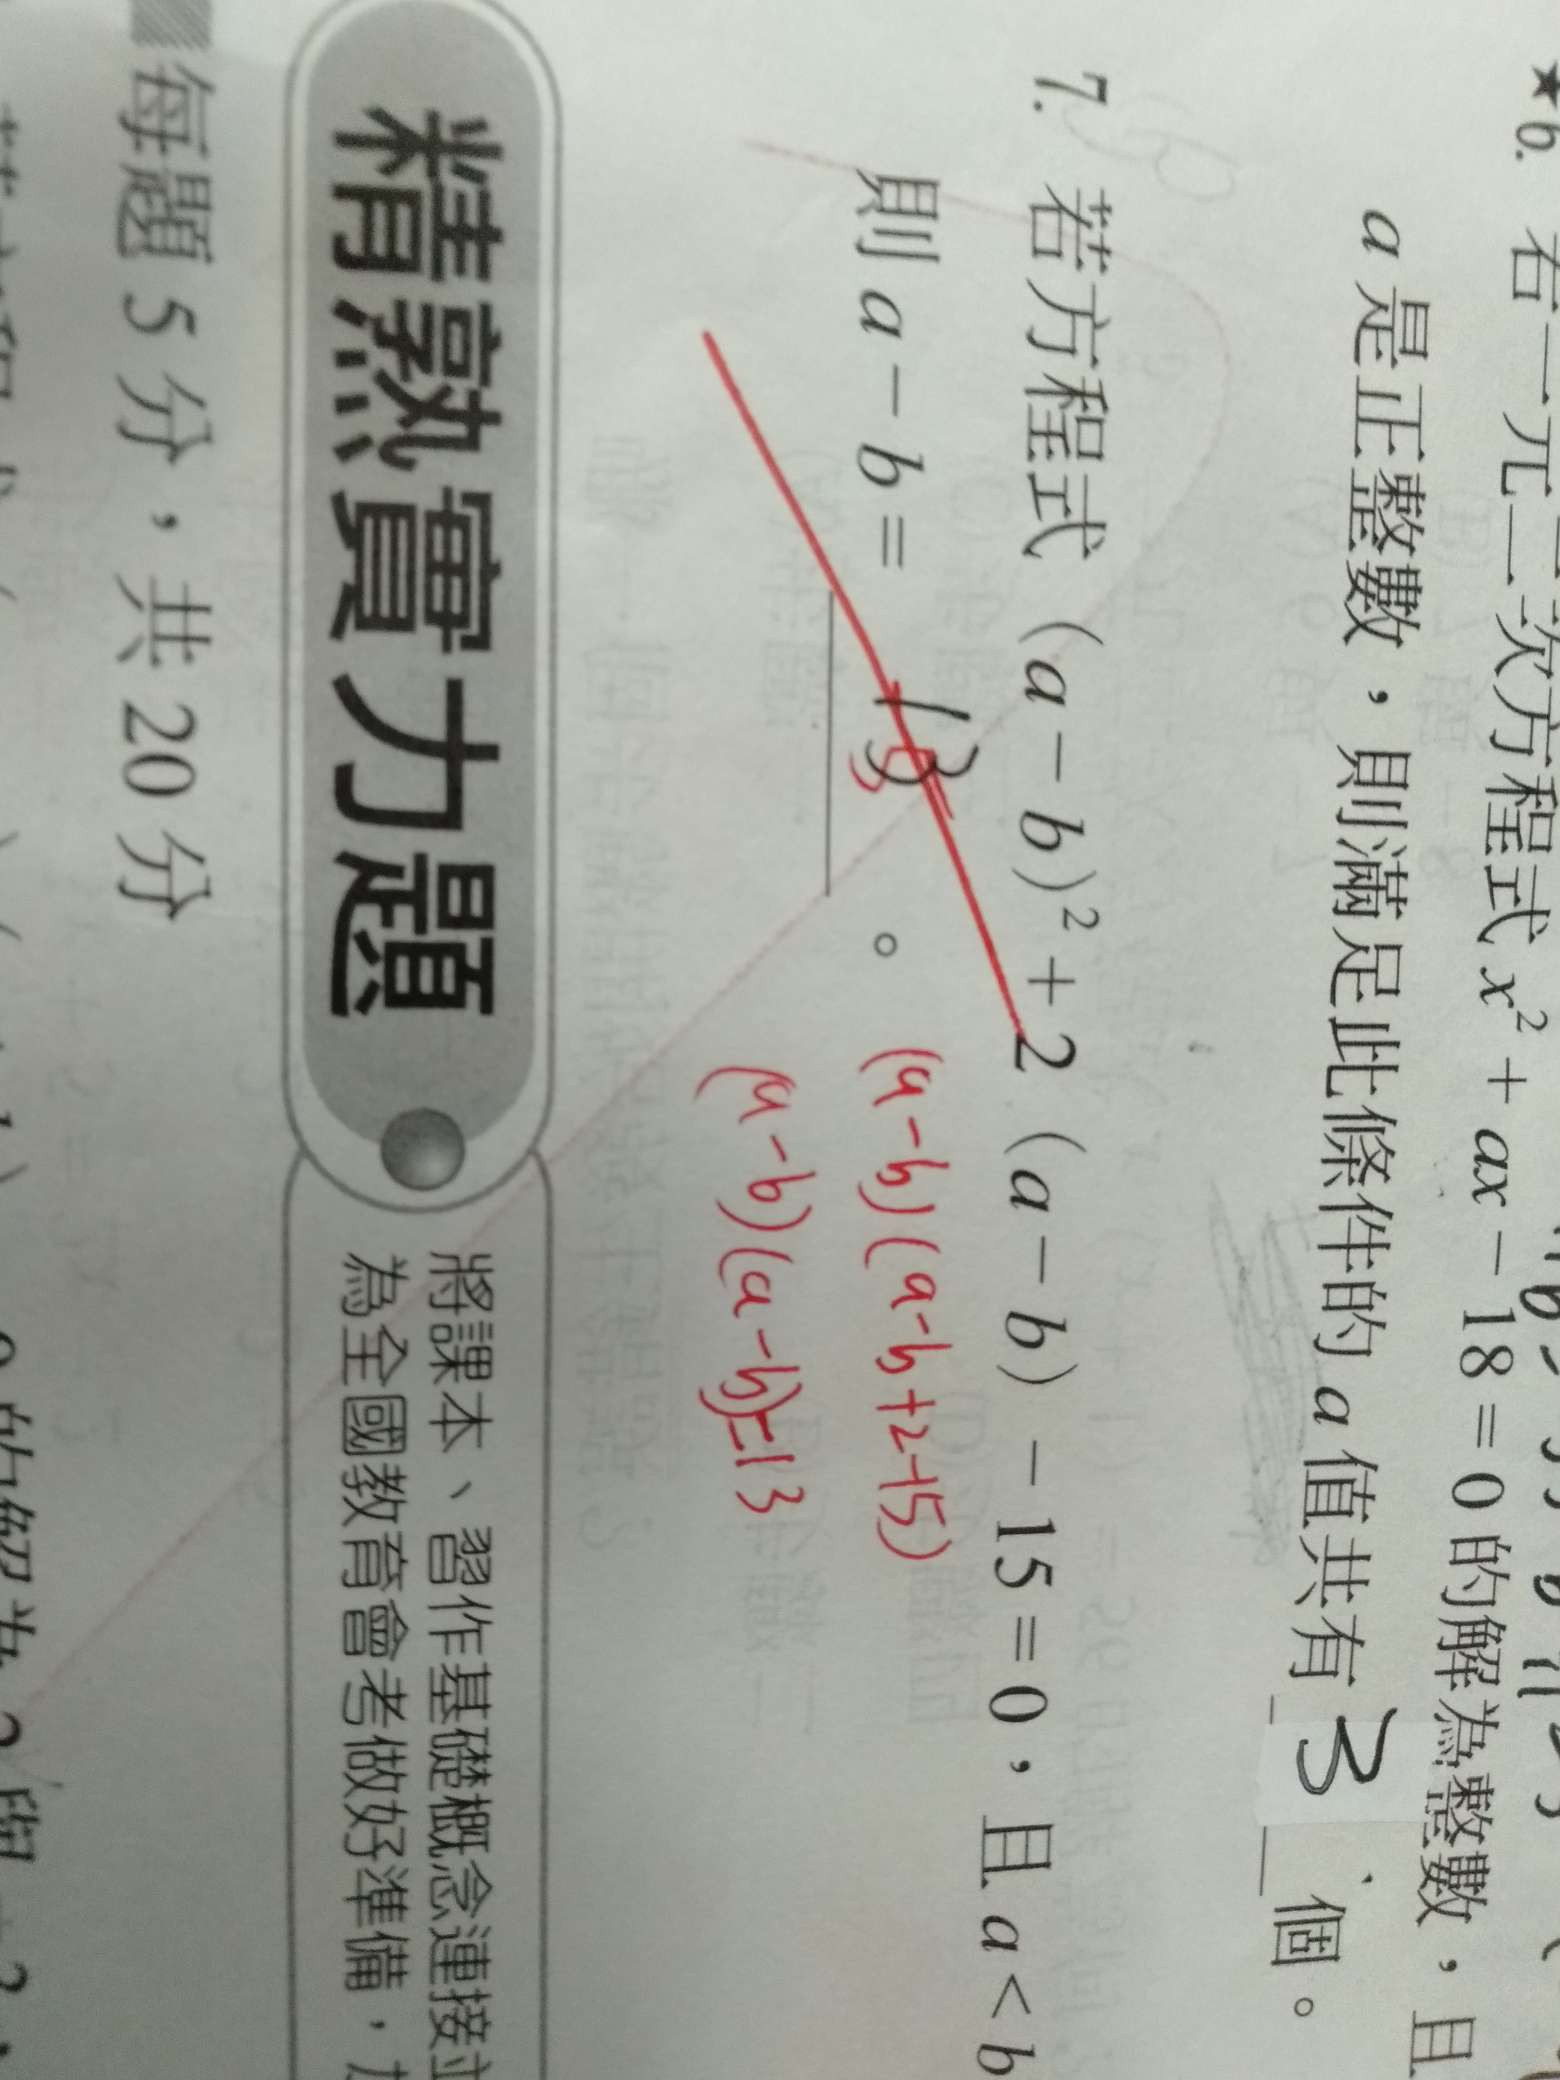 ★6. 若一元二次方程式 x² + ax − 18 = 0 的解為整數，且
a 是正整數，則滿足此條件的 a 值共有 3 個。
7. 若方程式 (a − b)² + 2 (a − b) − 15 = 0，且 a < b
則 a − b = 。
(a-b)(a-b+2-15)
(a-b)(a-b)=13
精熟實力題
將課本、習作基礎概念連接
為全國教育會考做好準備，
每題 5 分，共 20 分